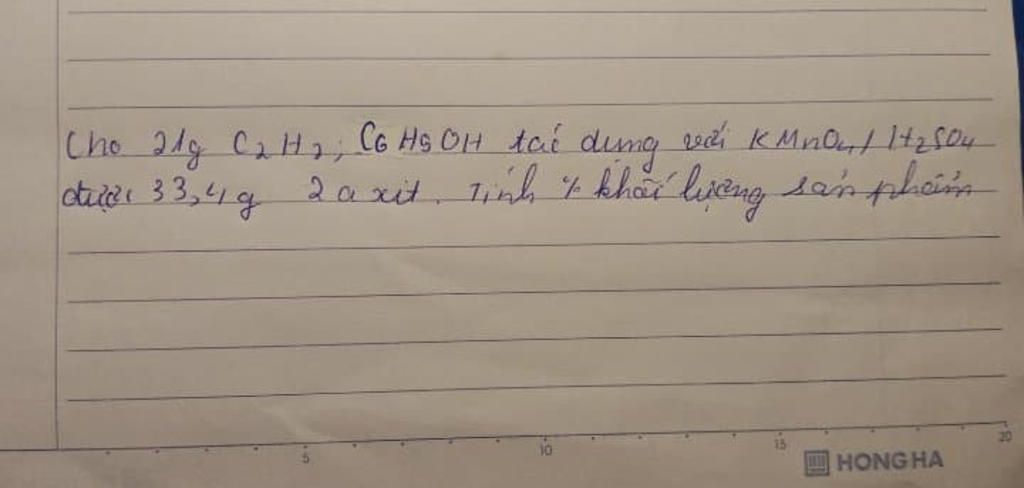 Cho 21g C2H2, C6H5OH tác dụng với KMnO4/H2SO4
được 33,4g 2 axit. Tính % khối lượng sản phẩm
5 10 15 20
HONG HA